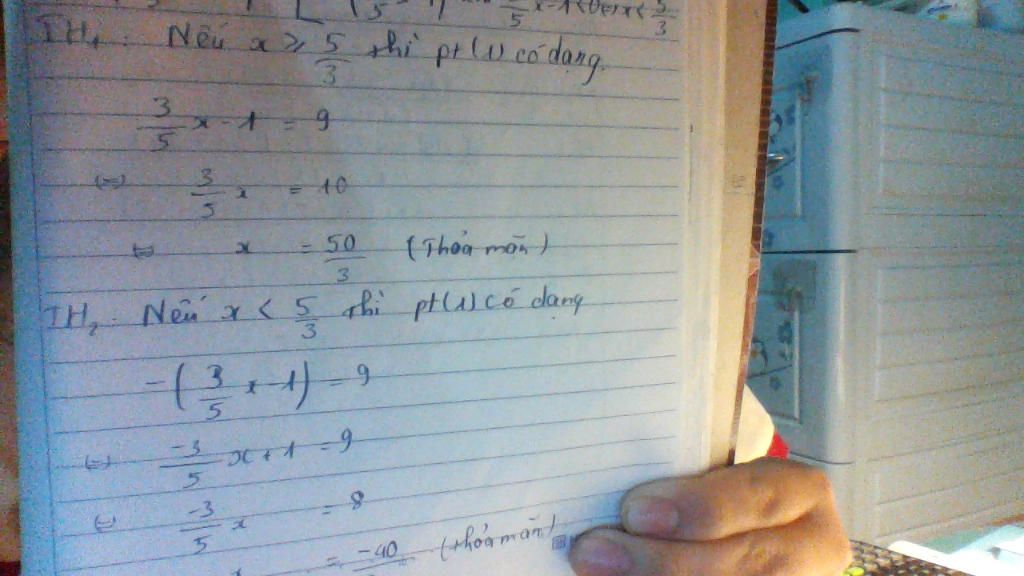 3/5 x - 1 < 0 <=> x < 5/3
TH1: Nếu x ≥ 5/3 thì pt(1) có dạng.
3/5 x - 1 = 9
(=) 3/5 x = 10
x = 50/3 (Thỏa mãn)
TH2: Nếu x < 5/3 thì pt(1) có dạng
-(3/5 x - 1) = 9
(=) -3/5 x + 1 = 9
(=) -3/5 x = 8
x = -40 (thỏa mãn)